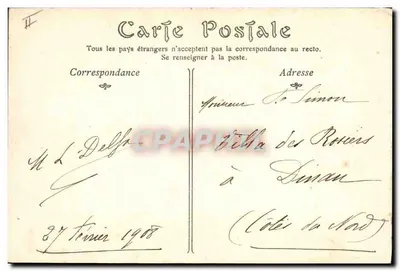 Carte Postale
Tous les pays étrangers n'acceptent pas la correspondance au recto.
Se renseigner à la poste.
Correspondance
Adresse
Monsieur Simon
Villa des Rosiers
à Dinan
(Côtes du Nord)
27 Février 1908
CPARAMA